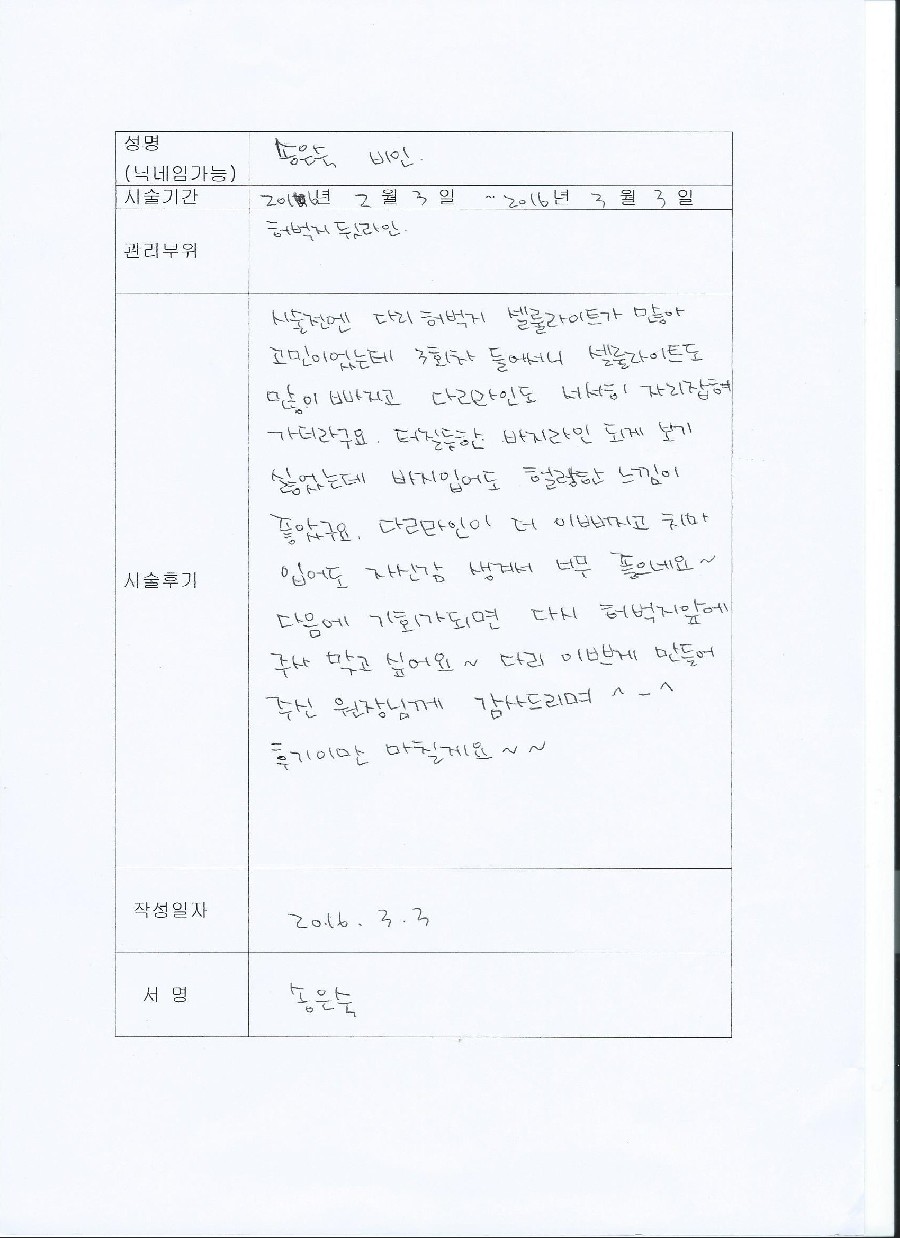 성명 송은숙 비안.
(닉네임가능)
시술기간 2016년 2월 3일 ~2016년 3월 3일
허벅지 뒷라인.
관리부위
시술전엔 다리 허벅지 셀룰라이트가 많아
고민이었는데 3회차 들어서니 셀룰라이트도
많이 빠지고 다리라인도 서서히 자리잡혀
가더라구요. 터질듯한 바지라인 되게 보기
싫었는데 바지입어도 헐렁한 느낌이
좋았구요. 다리라인이 더 이뻐지고 치마
시술후기 입어도 자신감 생겨서 너무 좋으네요~
다음에 기회가되면 다시 허벅지앞에
주사 맞고 싶어요~ 다리 이쁘게 만들어
주신 원장님께 감사드리며 ^-^
후기이만 마칠게요~~
작성일자 2016. 3. 3
서 명 송은숙